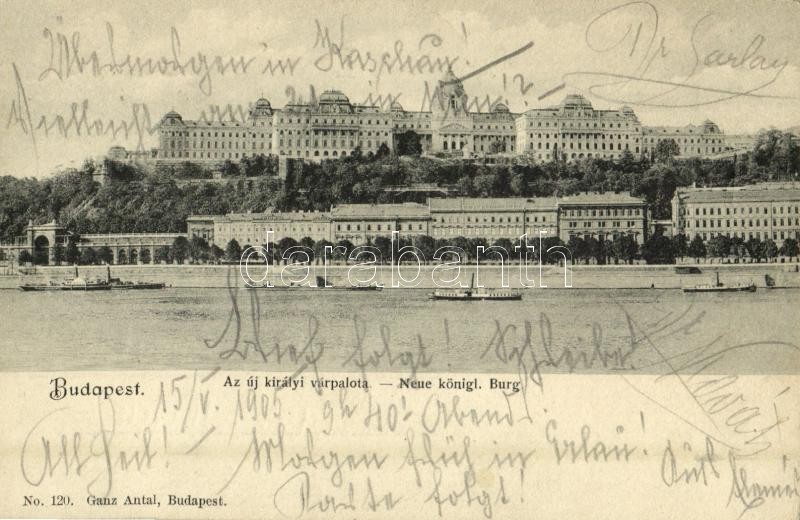 Übermorgen in Kaschau!
Vielleicht auch in Wien?
Dr Garlay
darabanth
Brief folgt! Schreibe!
Budapest.
Az új királyi várpalota — Neue königl. Burg
15/V. 1905 9h 40' Abend.
All Heil! Morgen früh in Erlau!
Karte folgt!
No. 120. Ganz Antal, Budapest.